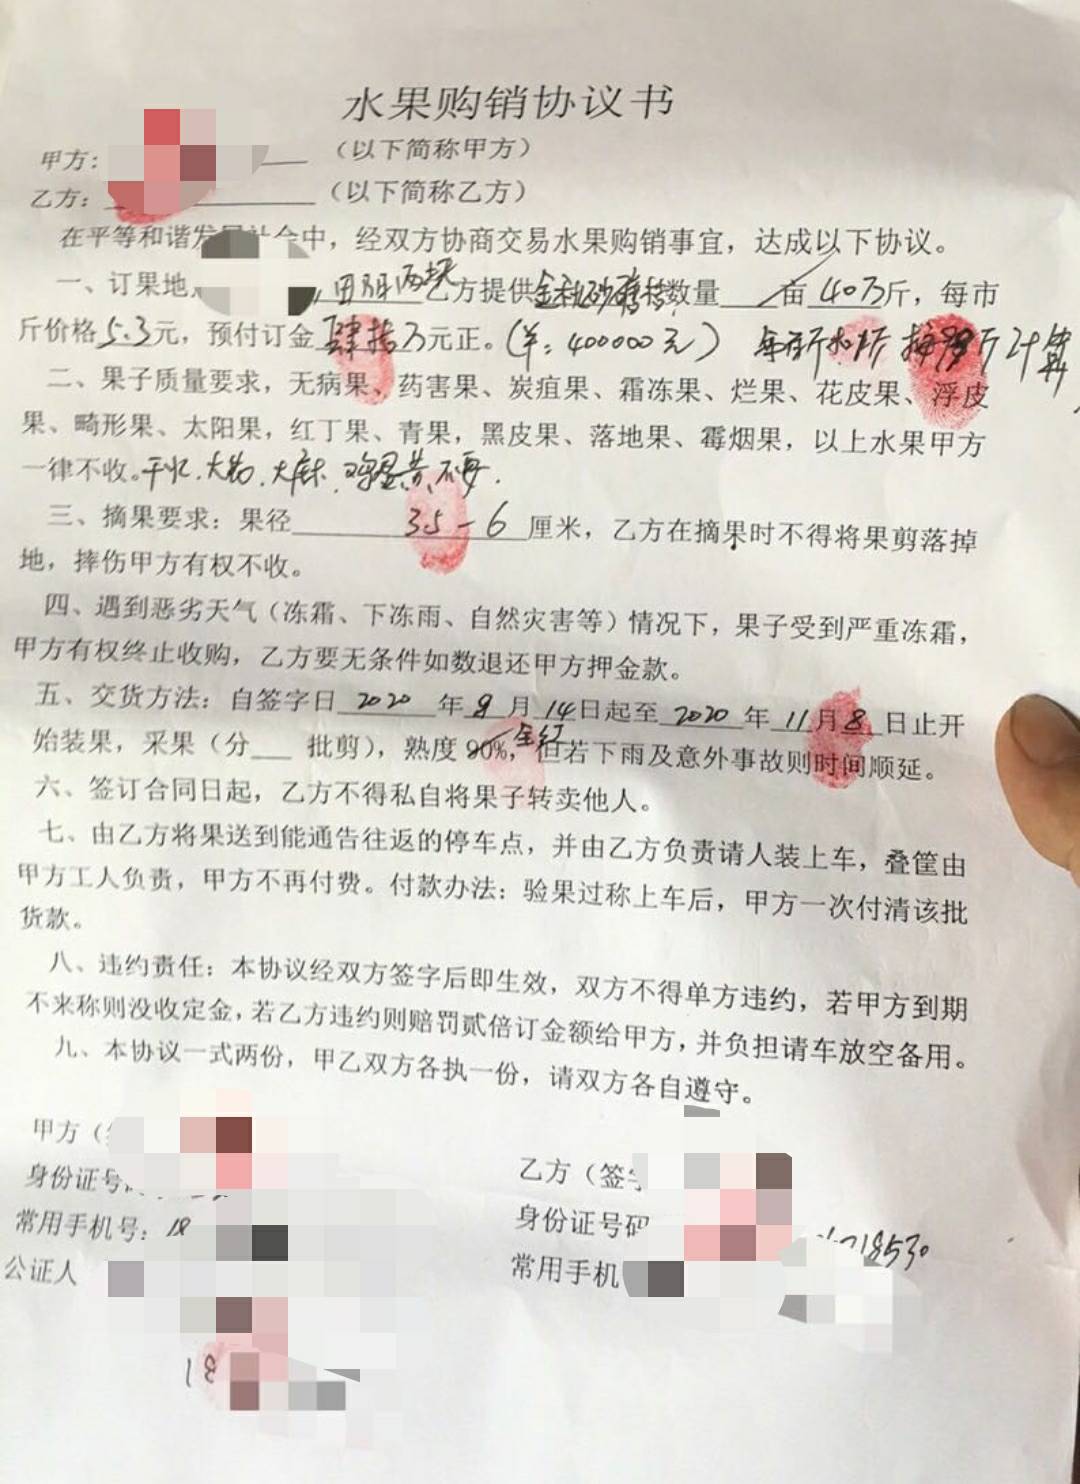 水果购销协议书
甲方： （以下简称甲方）
乙方： （以下简称乙方）
在平等和谐发展社会中，经双方协商交易水果购销事宜，达成以下协议。
一、订果地 田阳两块 乙方提供金秋砂糖桔数量 亩 40万斤，每市
斤价格5.3元，预付订金肆拾万元正。(￥：400000元) 每百斤 按 斤计算
二、果子质量要求，无病果、药害果、炭疽果、霜冻果、烂果、花皮果、浮皮
果、畸形果、太阳果，红丁果、青果，黑皮果、落地果、霉烟果，以上水果甲方
一律不收。干 、大 、大 、 不要.
三、摘果要求：果径 35-6 厘米，乙方在摘果时不得将果剪落掉
地，摔伤甲方有权不收。
四、遇到恶劣天气（冻霜、下冻雨、自然灾害等）情况下，果子受到严重冻霜，
甲方有权终止收购，乙方要无条件如数退还甲方押金款。
五、交货方法：自签字日 2020 年 9 月 14日起至 2020 年 11月 8 日止开
始装果，采果（分 批剪），熟度 90%，全红 但若下雨及意外事故则时间顺延。
六、签订合同日起，乙方不得私自将果子转卖他人。
七、由乙方将果送到能通告往返的停车点，并由乙方负责请人装上车，叠筐由
甲方工人负责，甲方不再付费。付款办法：验果过称上车后，甲方一次付清该批
货款。
八、违约责任：本协议经双方签字后即生效，双方不得单方违约，若甲方到期
不来称则没收定金，若乙方违约则赔罚贰倍订金额给甲方，并负担请车放空备用。
九、本协议一式两份，甲乙双方各执一份，请双方各自遵守。
甲方（
身份证号
常用手机号：18
公证人
13
乙方（签字
身份证号码
718530
常用手机